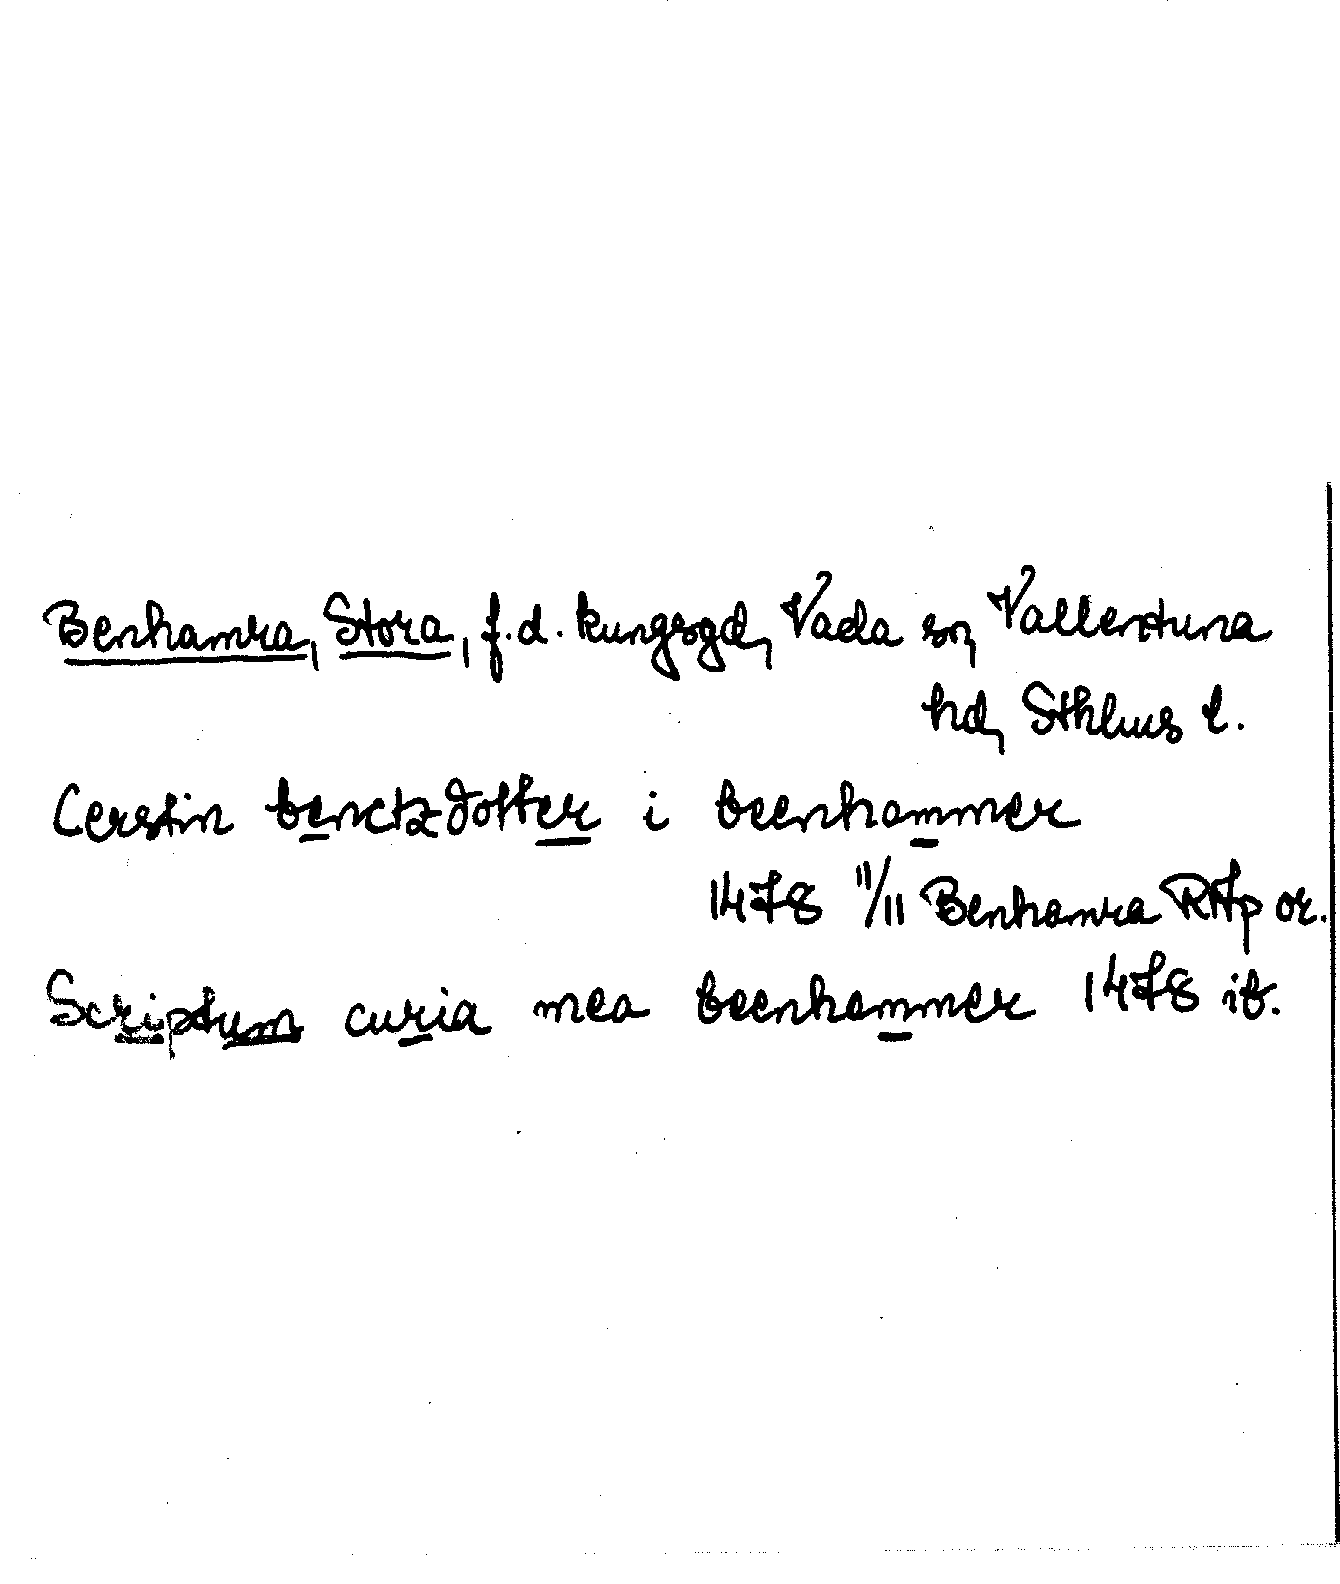 Benhamra, Stora, f.d. kungsgd, Vada sn, Vallentuna
hd, Sthlms l.
Cerstin benctzdotter i beenhammer
1478 11/11 Benhamra RAp or.
Scriptum curia mea beenhammer 1478 ib.